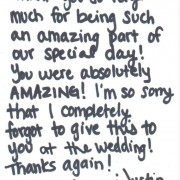 you so
much for being such
an amazing part of
our special day!
You were absolutely
AMAZING! I'm so sorry
that I completely
forgot to give this to
you at the wedding!
Thanks again!
Justin